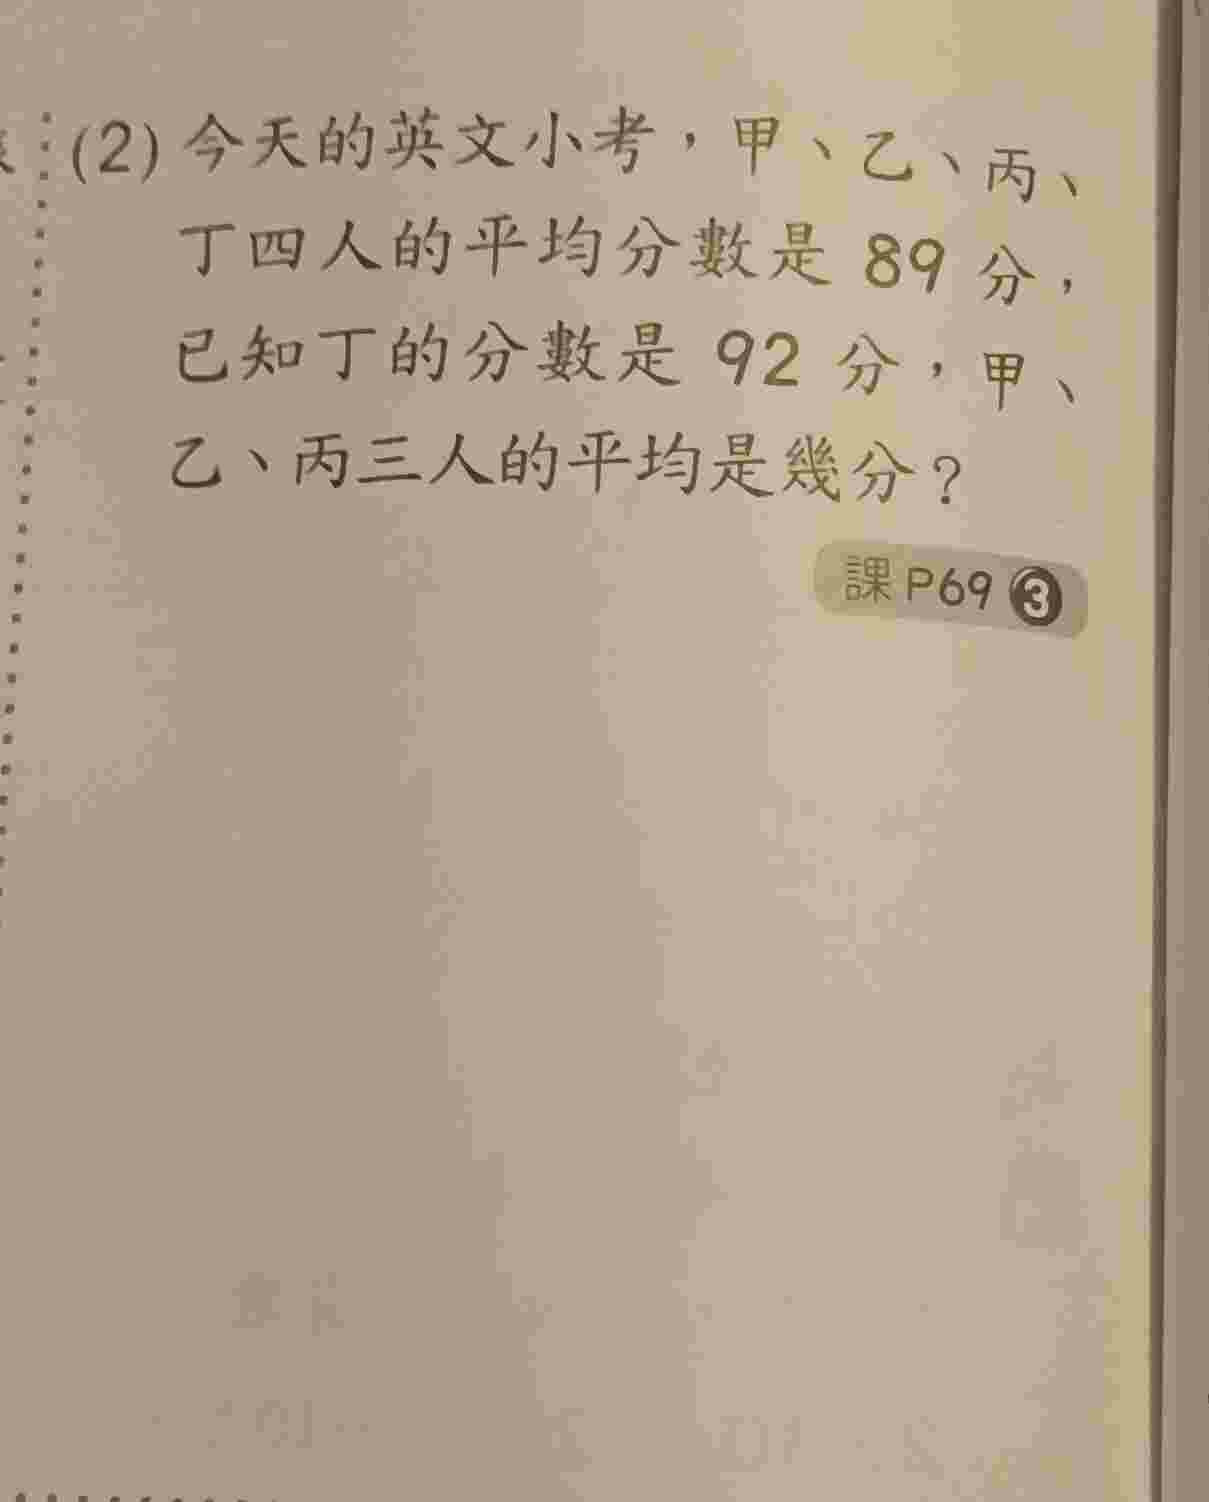 (2) 今天的英文小考，甲、乙、丙、
丁四人的平均分數是 89 分，
已知丁的分數是 92 分，甲、
乙、丙三人的平均是幾分？
課 P69 ❸